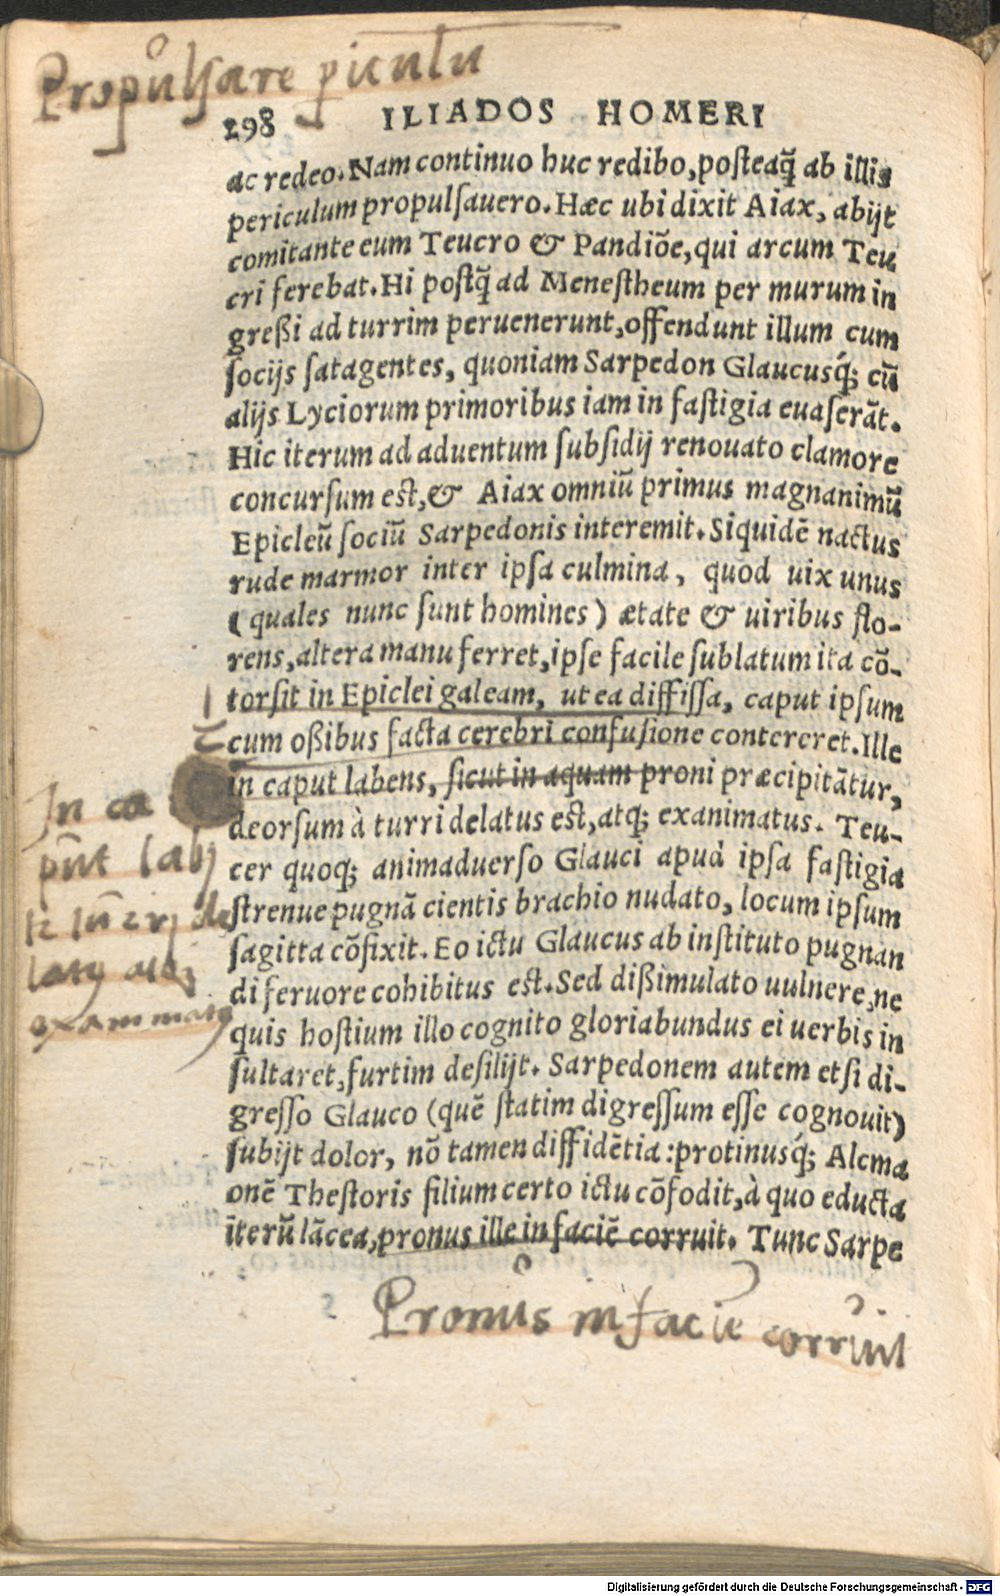 Propulsare piculu
298 ILIADOS HOMERI
ac redeo. Nam continuo huc redibo, posteaq̃ ab illis
periculum propulsauero. Hæc ubi dixit Aiax, abijt
comitante eum Teucro & Pandiõe, qui arcum Teu
cri ferebat. Hi postq̃ ad Menestheum per murum in
greßi ad turrim peruenerunt, offendunt illum cum
socijs satagentes, quoniam Sarpedon Glaucusq́; cũ
alijs Lyciorum primoribus iam in fastigia euaserãt.
Hic iterum ad aduentum subsidij renouato clamore
concursum est, & Aiax omniũ primus magnanimũ
Epicleũ sociũ Sarpedonis interemit. Siquidẽ nactus
rude marmor inter ipsa culmina, quod uix unus
(quales nunc sunt homines) ætate & uiribus flo-
rens, altera manu ferret, ipse facile sublatum ita cõ-
torsit in Epiclei galeam, ut ea diffissa, caput ipsum
cum oßibus facta cerebri confusione contereret. Ille
in caput labens, sicut in aquam proni præcipitãtur,
deorsum à turri delatus est, atq; exanimatus. Teu-
cer quoq; animaduerso Glauci apud ipsa fastigia
strenue pugnã cientis brachio nudato, locum ipsum
sagitta cõfixit. Eo ictu Glaucus ab instituto pugnan
di feruore cohibitus est. Sed dißimulato uulnere, ne
quis hostium illo cognito gloriabundus ei uerbis in
sultaret, furtim desilijt. Sarpedonem autem etsi di-
gresso Glauco (quẽ statim digressum esse cognouit)
subijt dolor, nõ tamen diffidẽtia: protinusq́; Alcma
onẽ Thestoris filium certo ictu cõfodit, à quo educta
iterũ lãcea, pronus ille in faciẽ corruit. Tunc Sarpe
In ca
put labi
de
exammatq
Pronus in facie corruit
Digitalisierung gefördert durch die Deutsche Forschungsgemeinschaft - DFG